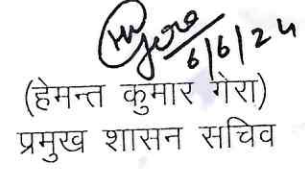 6/6/24
(हेमन्त कुमार गेरा)
प्रमुख शासन सचिव